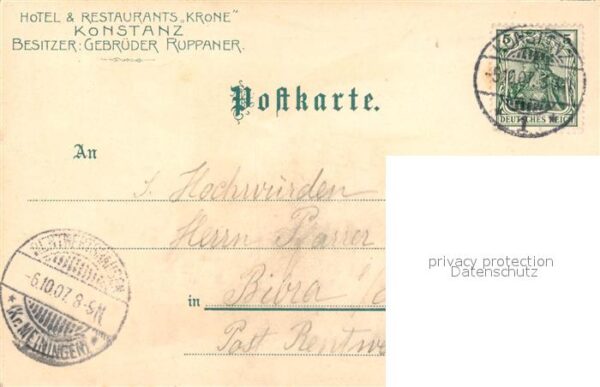 HOTEL & RESTAURANTS „KRONE"
KONSTANZ
BESITZER: GEBRÜDER RUPPANER.
5
DEUTSCHES REICH
-5.10.07.
1
Postkarte.
An
S. Hochwürden
Herrn Pfarrer
in Bibra
Post Rentwe
-6.10.07. 8-9N.
*(Kr. MEININGEN)*
privacy protection
Datenschutz